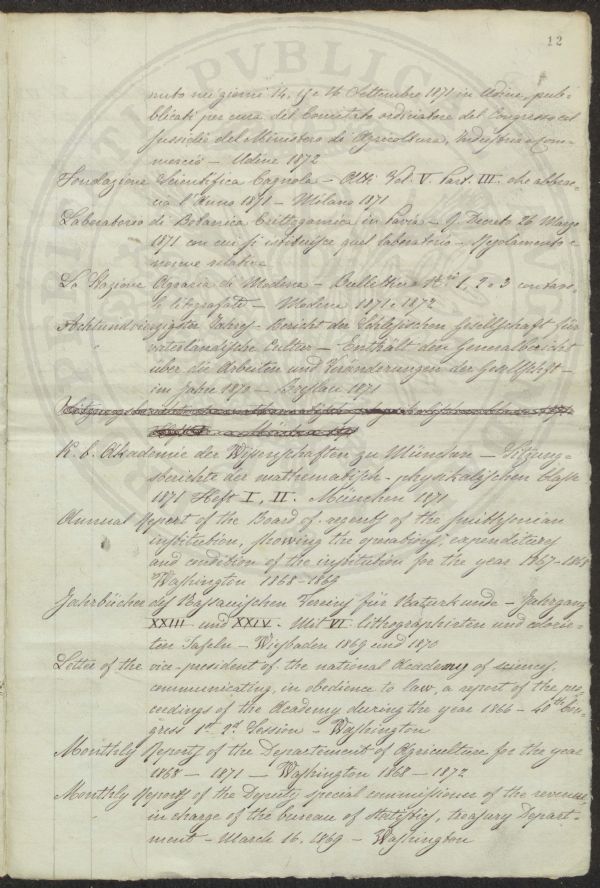 12
nuto nei giorni 14, 15 e 16 Settembre 1871 in Udine, pub=
blicati per cura del Comitato ordinatore del Congresso col
sussidio del Ministero di Agricoltura, Industria e Com=
mercio – Udine 1872
Fondazione Scientifica Cagnola – Atti. Vol. V. Part. III. che abbrac=
cia l'Anno 1871 – Milano 1871
Laboratorio di Botanica Crittogamica in Pavia – R. Decreto 26 Marzo
1871 con cui si istituisce quel laboratorio – Regolamento e
norme relative
La Stazione Agraria di Modena – Bullettino N.ri 1, 2 e 3 con
litografate – Modena 1871 e 1872
Achtundvierzigster Jahres-Bericht der Schlesischen Gesellschaft für
" vaterländische Cultur – Enthält den Generalbericht
über die Arbeiten und Veränderungen der Gesellschaft –
im Jahre 1870 – Breslau 1871
K. b. Akademie der Wissenschaften zu München – Sitzung=
sberichte der mathematisch-physikalischen Classe
1871 Heft I, II. München 1871
Annual Report of the Board of regents of the smithsonian
institution, showing the operations, expenditures
and condition of the institution for the year 1867–1868
Washington 1868–1869
Jahrbücher des Nassauischen Vereins für Naturkunde – Jahrgang
XXIII und XXIV. Mit VI lithographirten und colorir=
ten Tafeln – Wiesbaden 1869 und 1870
Letter of the vice-president of the national Academy of sciences,
communicating, in obedience to law, a report of the pro=
ceedings of the Academy during the year 1866 – 40th Con=
gress 1st 2d Session – Washington
Monthly Reports of the Departement of Agriculture for the year
1868 – 1871 – Washington 1868 – 1872
Monthly Reports of the Deputy special commissioner of the revenue,
in charge of the bureau of statistics, treasury Depart=
ment – March 16, 1869 – Washington